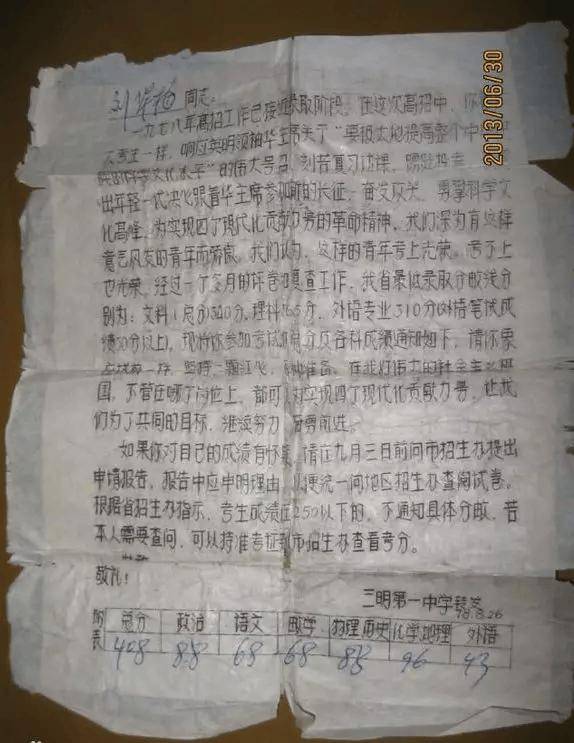 2013/06/30
刘 同志:
一九七八年高招工作已接近录取阶段。在这次高招中,你
一样,响应英明领袖华主席关于“要极大地提高整个中
科学文化水平”的伟大号召,刻苦复习功课,踊跃报考,
出年轻一代决心跟着华主席参加新的长征,奋发攻关,勇攀科学文
化高峰,为实现四个现代化贡献力量的革命精神。我们深为有这样
意气风发的青年而骄傲。我们认为,这样的青年考上光荣,考不上
也光荣。经过一个多月的评卷和复查工作,我省最低录取分数线分
别为:文科(总分)340分,理科 分,外语专业310分(外语笔试成
绩50分以上)。现将你参加考试的总分及各科成绩通知如下,请你象
一样,坚持一颗红心, 准备。在我们伟大的社会主义祖
国,不管在哪个岗位上,都可 为实现四个现代化贡献力量,让我
们为了共同的目标,继续努力, 前进。
如果你对自己的成绩有怀疑,请在九月三日前向市招生办提出
申请报告。报告中应申明理由,以便统一向地区招生办查阅试卷。
根据省招生办指示,考生成绩在250以下的,不通知具体分数,若
本人需要查问,可以持准考证到市招生办查看考分。
敬礼!
三明第一中学转发
78.8.26
附表 总分 政治 语文 数学 物理历史 化学地理 外语
408 88 68 68 88 96 43